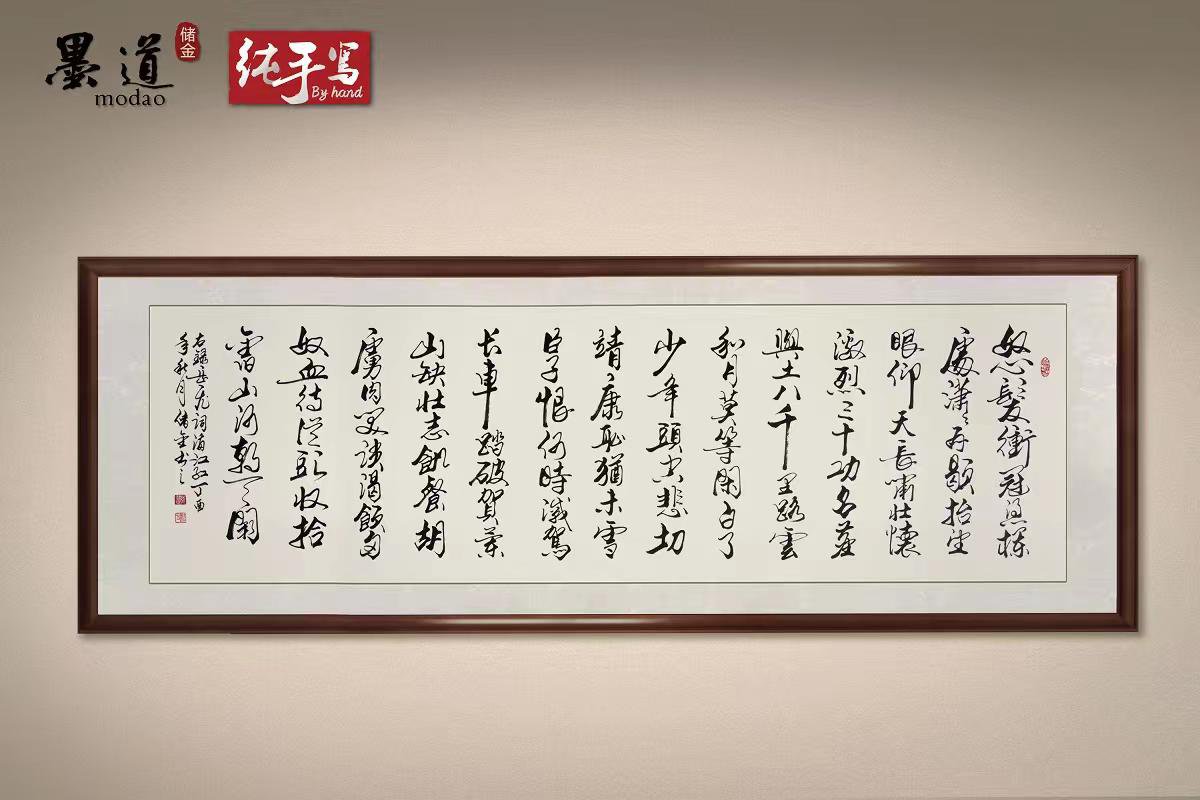 墨道
modao
储金
纯手写
By hand
怒髮衝冠憑欄
處瀟瀟雨歇抬望
眼仰天長嘯壯懷
激烈三十功名塵
與土八千里路雲
和月莫等閑白了
少年頭空悲切
靖康恥猶未雪
臣子恨何時滅駕
长車踏破賀蘭
山缺壯志飢餐胡
虜肉笑談渴飲匈
奴血待從頭收拾
舊山河朝天闕
右錄岳飛詞滿江紅丁酉
年秋月儲金書